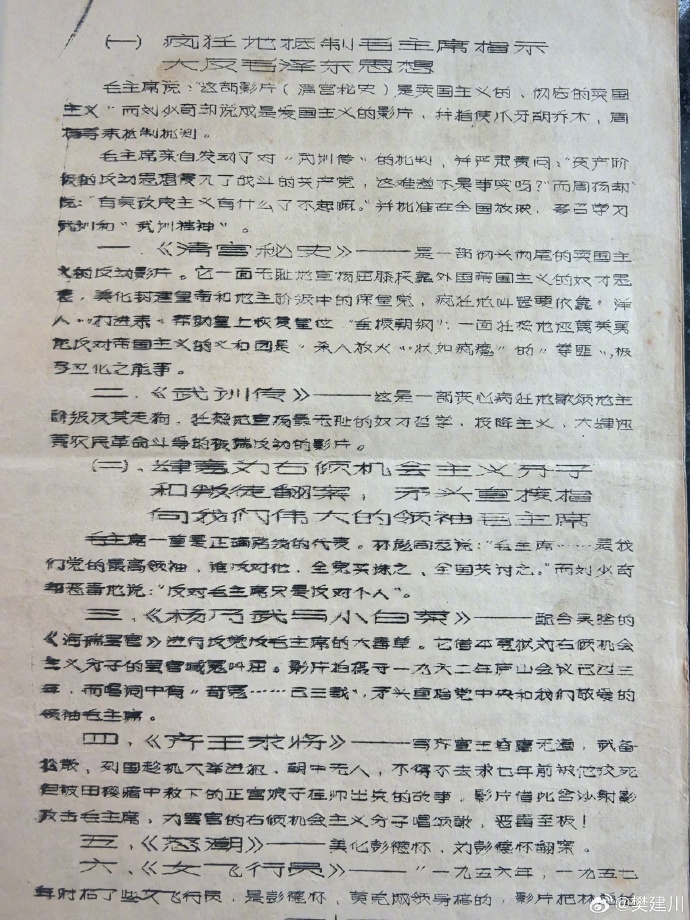 (一) 疯狂地抵制毛主席指示
大反毛泽东思想
毛主席说："这部影片(清宫秘史)是卖国主义的、彻底的卖国
主义"而刘少奇却说成是爱国主义的影片，并指使爪牙胡乔木，周
扬等来抵制批判。
毛主席亲自发动了对"武训传"的批判，并严肃责问："资产阶
级的反动思想侵入了战斗的共产党，这难道不是事实吗？"而周扬却
说："有点改良主义有什么了不起嘛。"并批准在全国放映，号召学习
武训和"武训精神"。
一．《清宫秘史》——是一部彻头彻尾的卖国主
义的反动影片。它一面无耻地宣扬屈膝投靠外国帝国主义的奴才思
想，美化封建皇帝和地主阶级中的保皇党，疯狂地叫嚣要依靠"洋
人""打进来"帮助皇上恢复皇位"重振朝纲"；一面狂热地诬蔑英勇
地反对帝国主义的义和团是"杀人放火""状如疯癫"的"拳匪"，极
尽丑化之能事。
二．《武训传》——这是一部丧心病狂地歌颂地主
阶级及其走狗，狂热地宣扬最无耻的奴才哲学，投降主义，大肆诬
蔑农民革命斗争的极端反动的影片。
(二)．肆意为右倾机会主义分子
和叛徒翻案，矛头直接指
向我们伟大的领袖毛主席
毛主席一直是正确路线的代表。林彪同志说："毛主席……是我
们党的最高领袖，谁反对他，全党共诛之、全国共讨之。"而刘少奇
却恶毒地说："反对毛主席只是反对个人"。
三．《杨乃武与小白菜》——配合吴晗的
《海瑞罢官》进行反党反毛主席的大毒草。它借平冤狱为右倾机会
主义分子的罢官喊冤叫屈。影片拍摄于一九六二年庐山会议已过三
年，而唱词中有"奇冤……已三载"，矛头直指党中央和我们敬爱的
领袖毛主席。
四．《齐王求将》——写齐宣王昏庸无道，武备
松散，列国趁机大举进犯，朝中无人，不得不去求七年前被他绞死
但被田稷暗中救下的正宫娘子挂帅出兵的故事，影片借此含沙射影
攻击毛主席，为罢官的右倾机会主义分子唱颂歌，恶毒至极！
五．《怒潮》——美化彭德怀，为彭德怀翻案。
六．《女飞行员》——"一九五六年，一九五七
年时搞了些女飞行员，是彭德怀、黄克诚领导搞的，影片把林
@樊建川